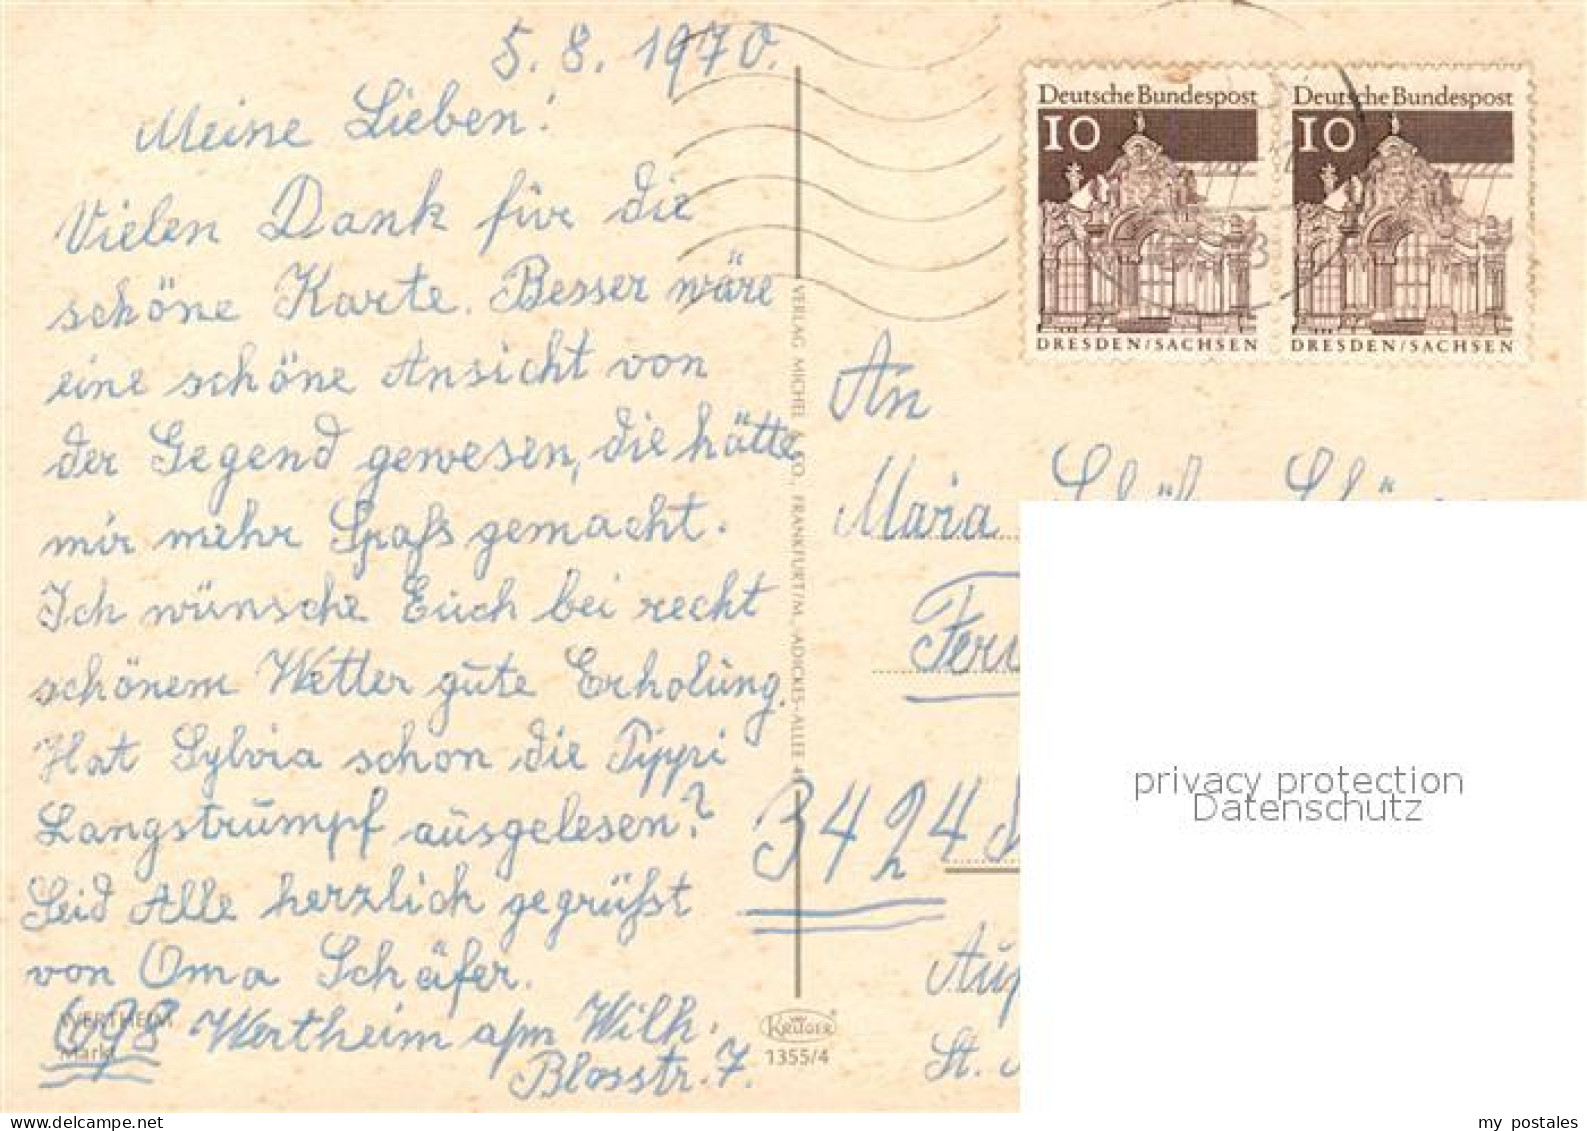 5. 8. 1970.
Meine Lieben!
Vielen Dank für die
schöne Karte. Besser wäre
eine schöne Ansicht von
der Gegend gewesen, die hätte
mir mehr Spaß gemacht.
Ich wünsche Euch bei recht
schönem Wetter gute Erholung.
Hat Sylvia schon die Pippi
Langstrumpf ausgelesen?
Seid Alle herzlich gegrüßst
von Oma Schäfer.
698 Wertheim a/m Wilh.
Blosstr. 7.
WERTHEIM
Markt
VERLAG MICHEL & CO., FRANKFURT/M., ADICKES-ALLEE
KRÜGER
1355/4
Deutsche Bundespost
10
DRESDEN/SACHSEN
Deutsche Bundespost
10
DRESDEN/SACHSEN
An
Maria
3424
St.
privacy protection
Datenschutz
delcampe.net
my_postales